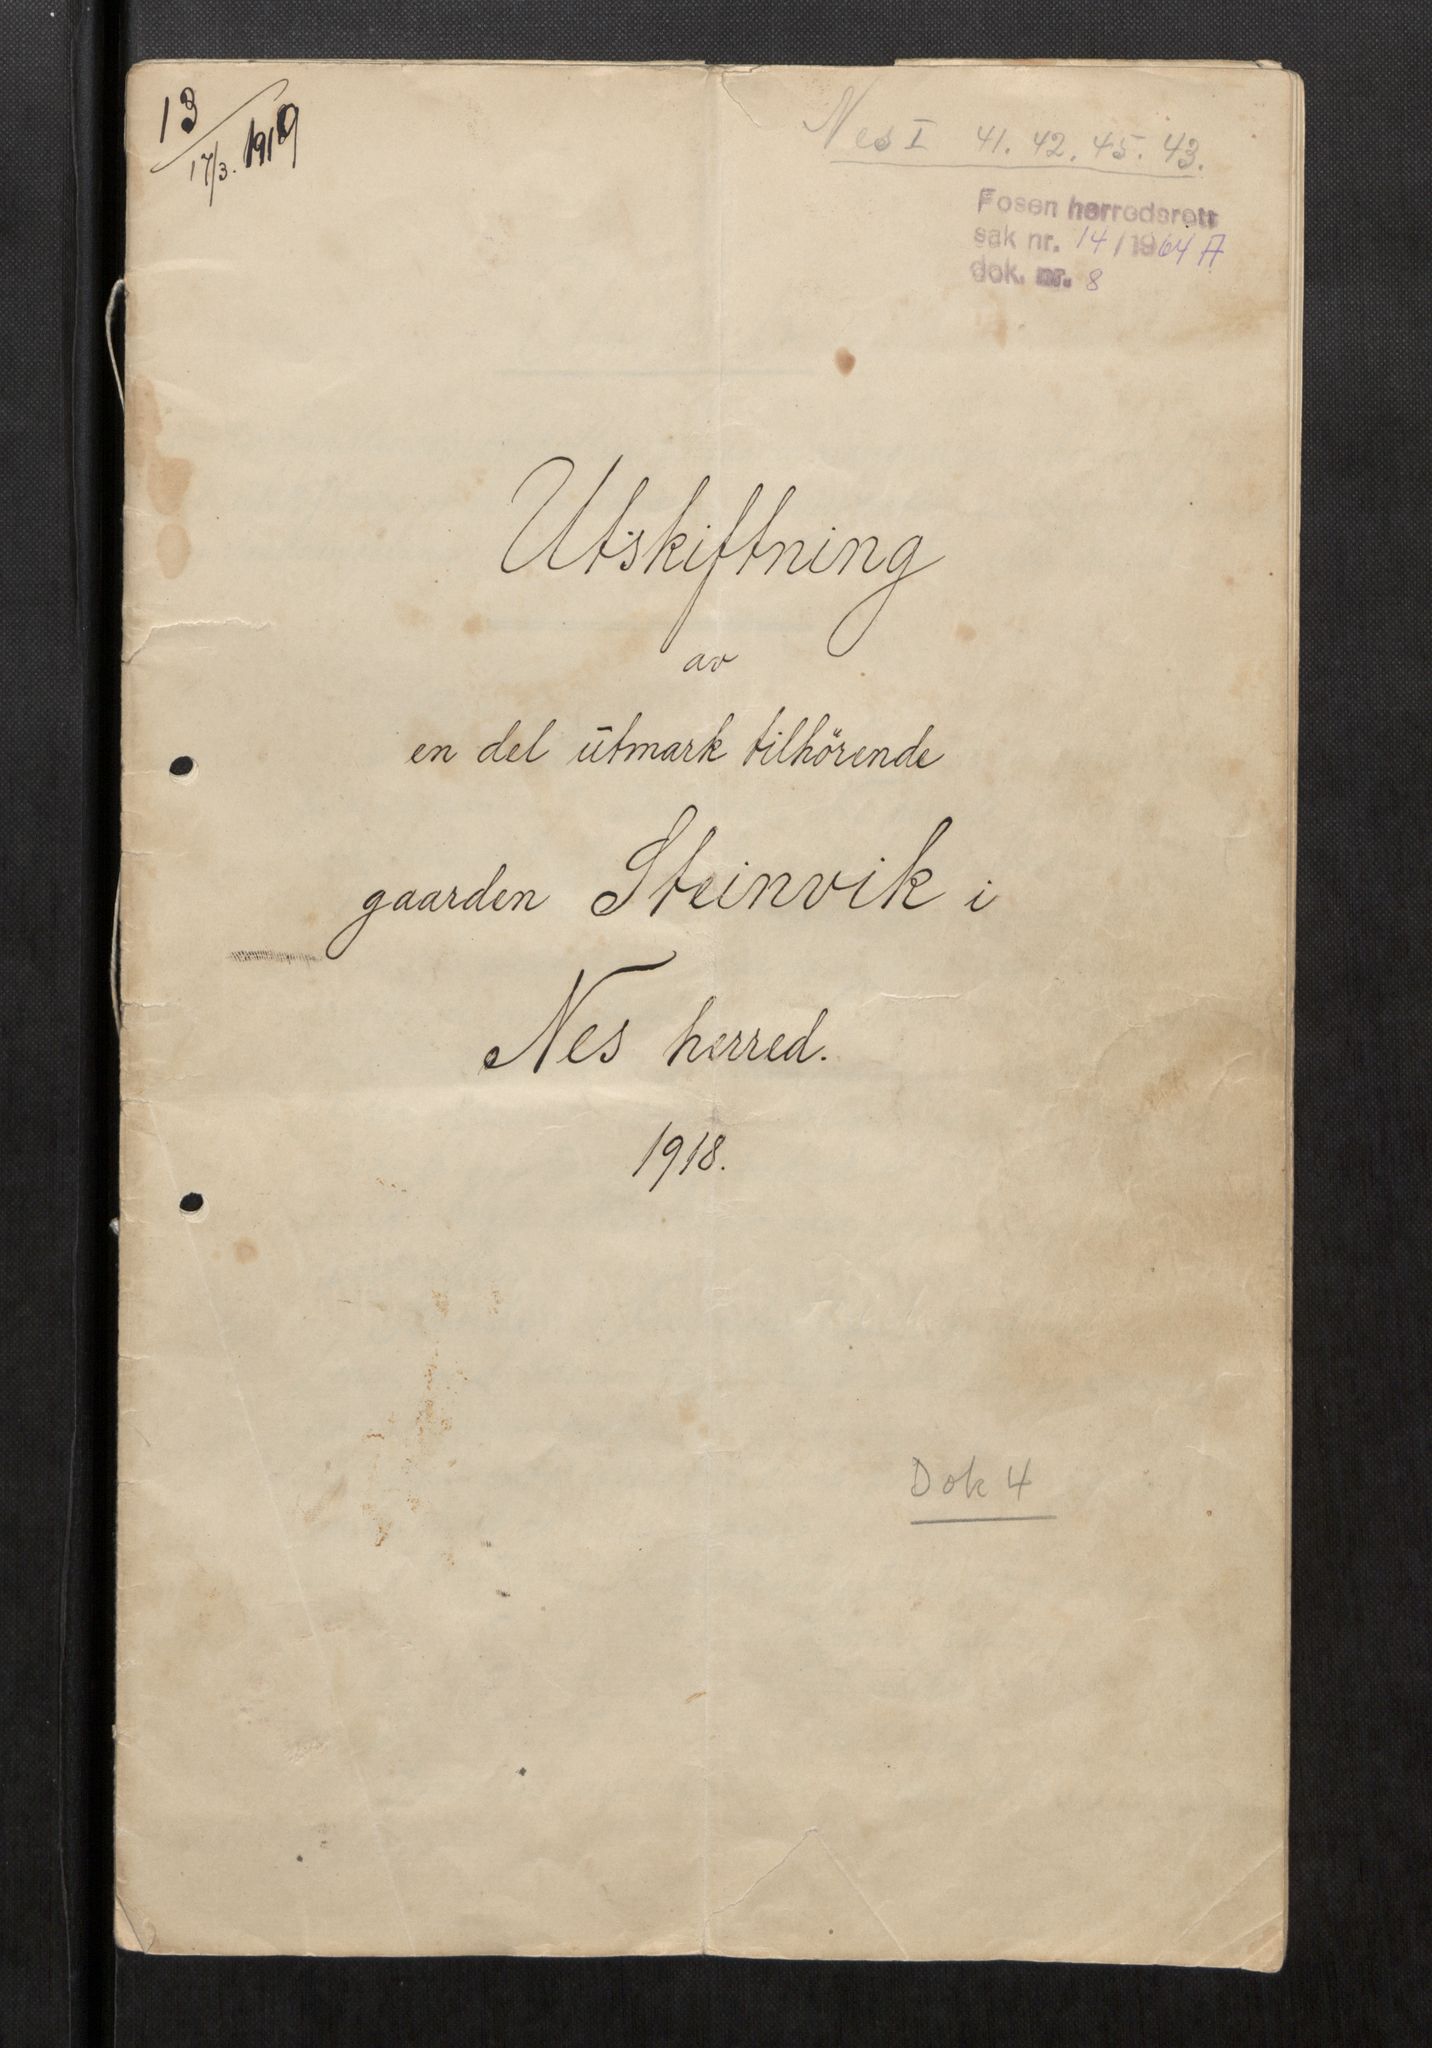 13
17/3. 1919
Nes I 41. 42. 45. 43.
Fosen herredsrett
sak nr. 14/1964 A
dok. nr. 8
Utskiftning
av
en del utmark tilhörende
gaarden Steinvik i
Nes herred.
1918.
Dok 4